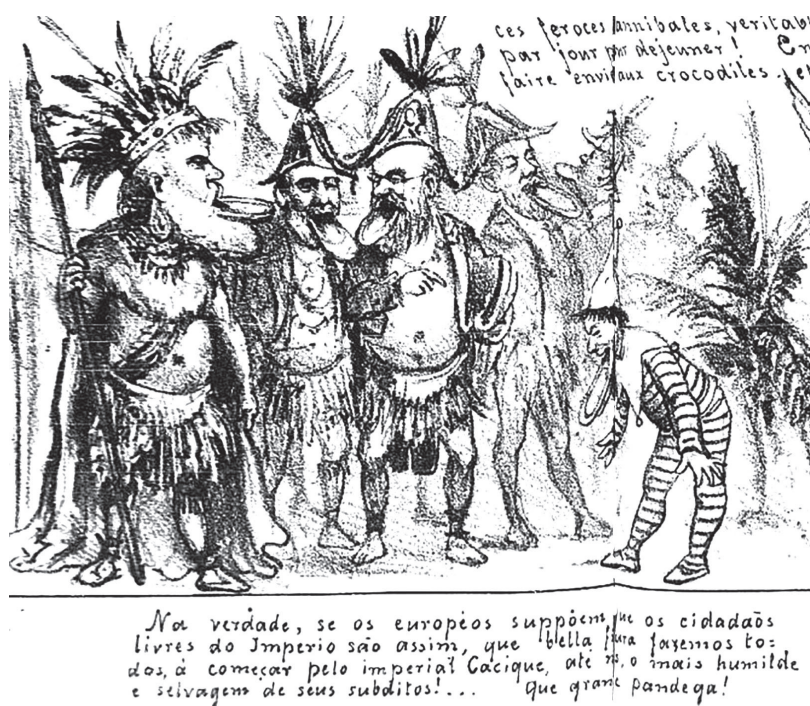 ces feroces annibales, veritab
par jour pour dejeuner! En
faire envi aux crocodiles.
Na verdade, se os européos suppõem, que os cidadaõs
livres do Imperio são assim, que bella figura fazemos to=
dos, á começar pelo imperial Cacique, até o mais humilde
e selvagem de seus subditos!... Que grande pandega!